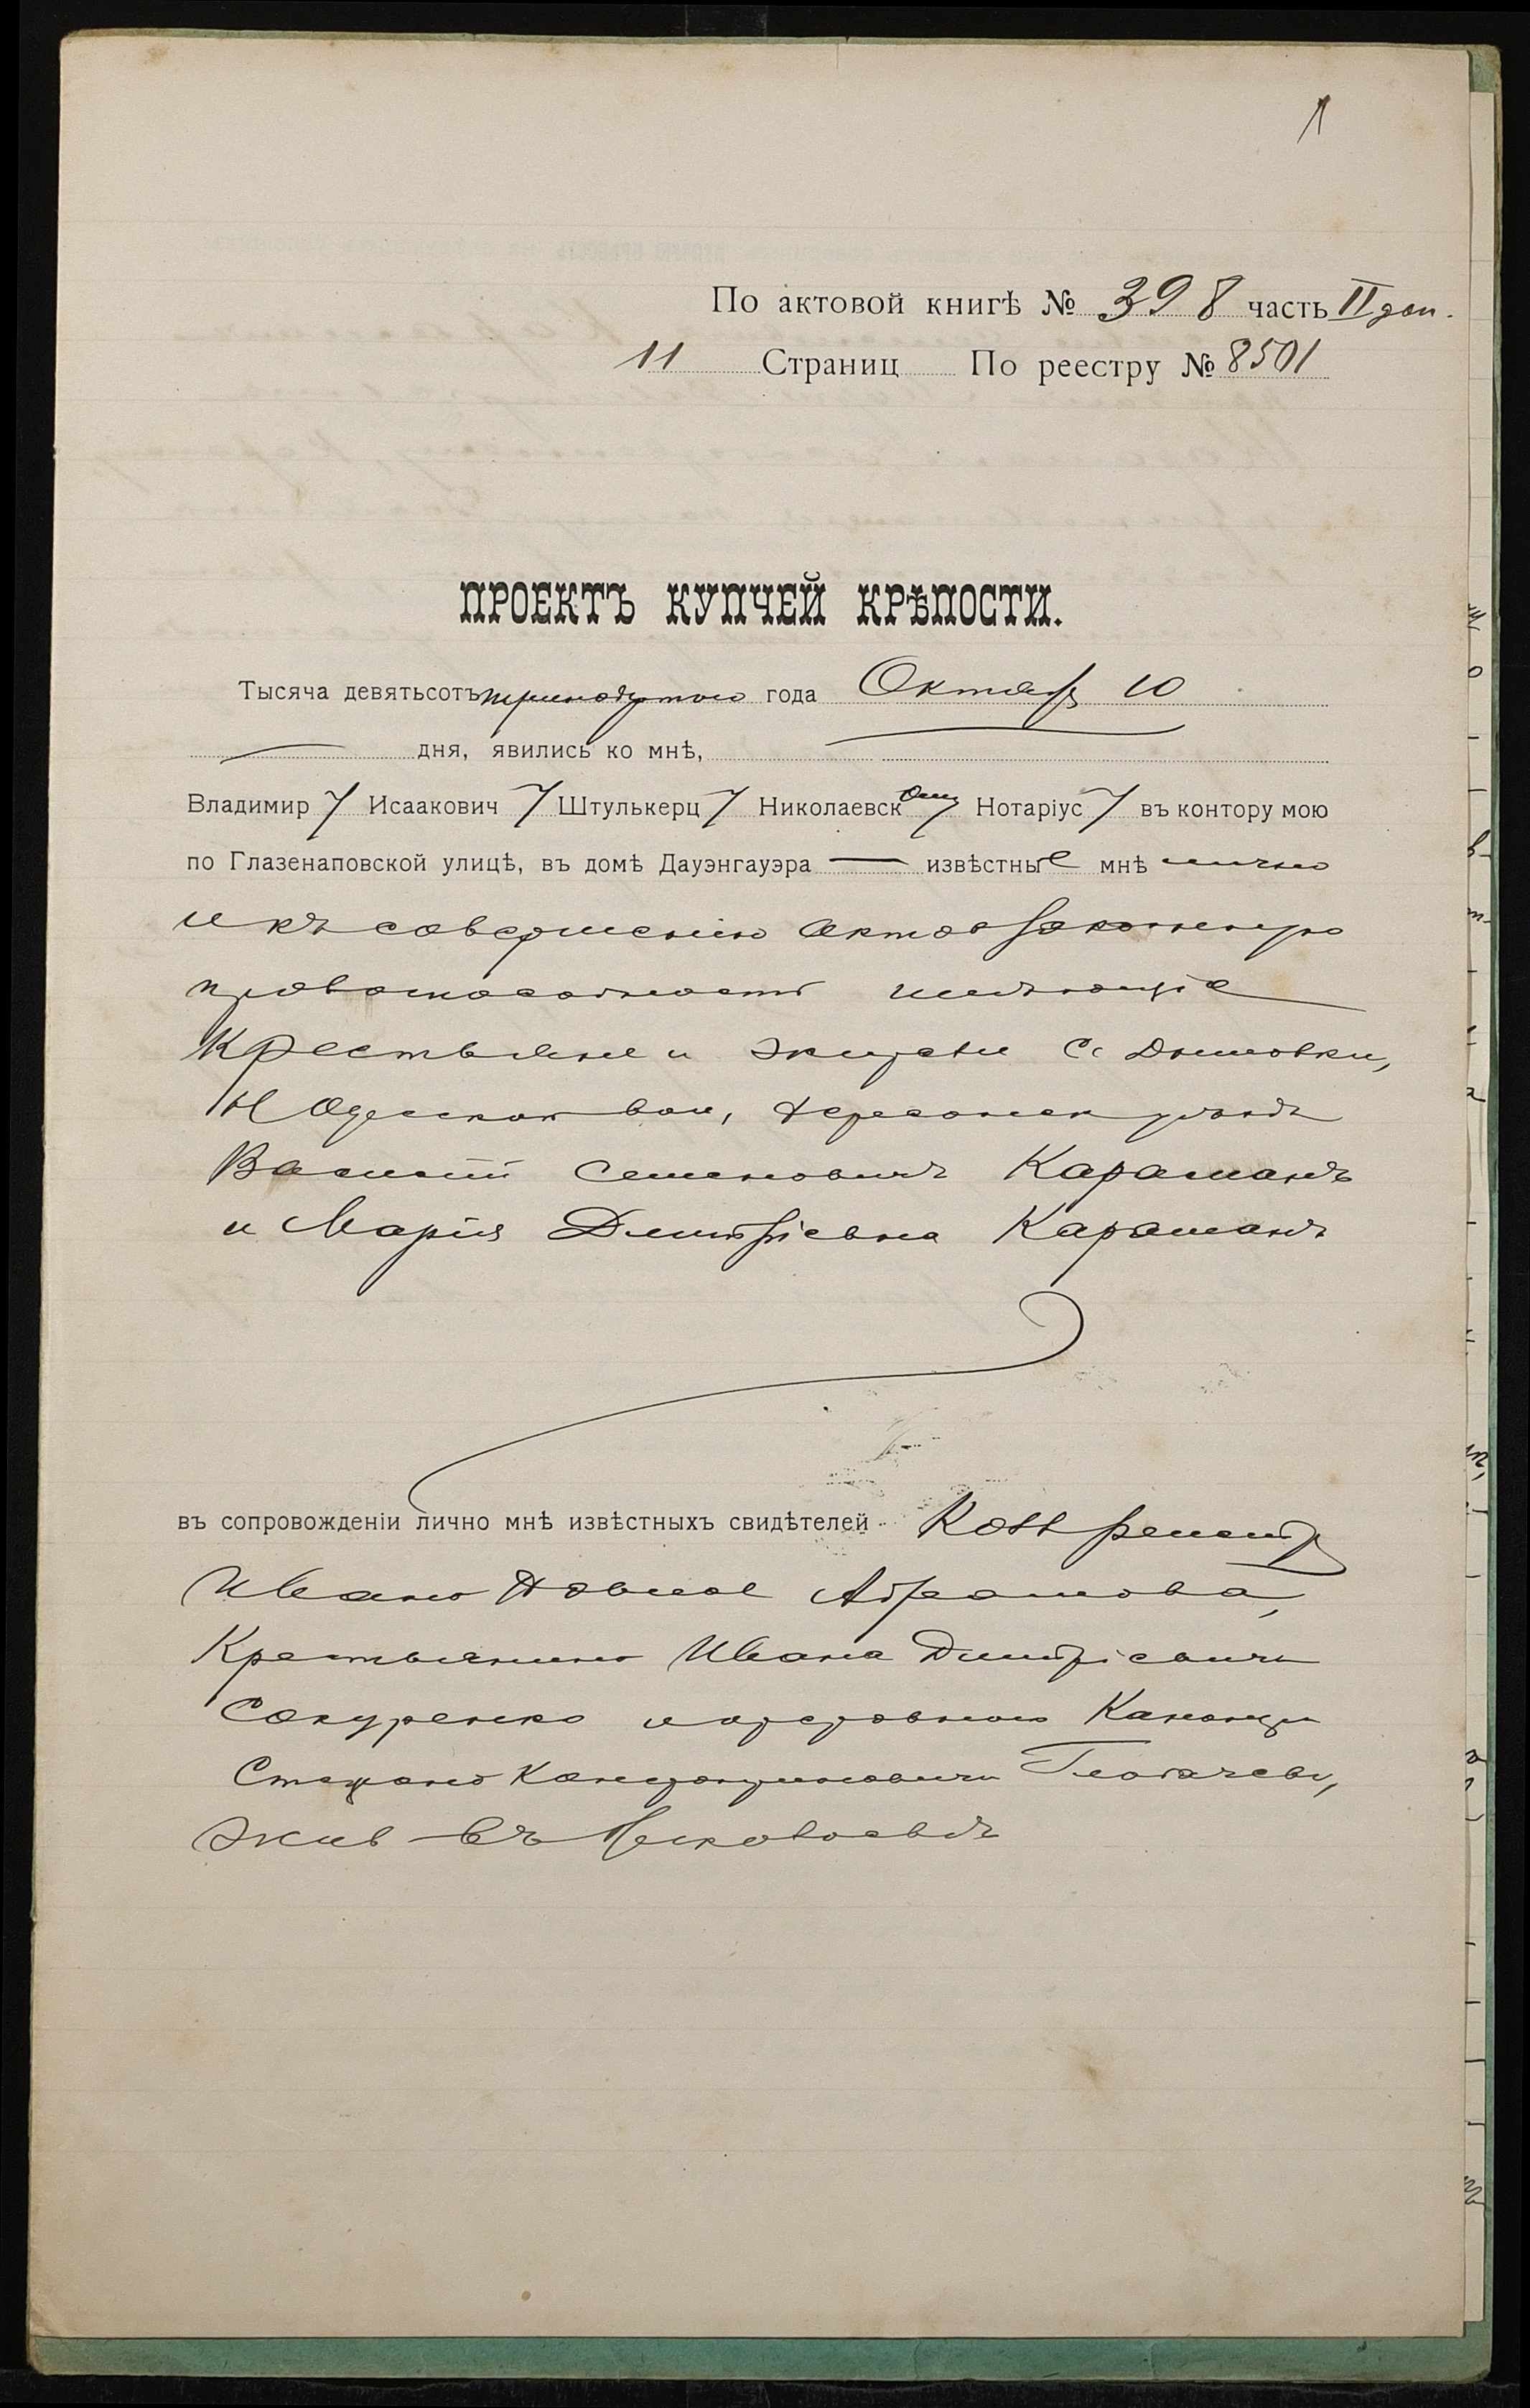 1
По актовой книгѣ № 398 часть II доп.
11 Страниц По реестру № 8501
ПРОЕКТЪ КУПЧЕЙ КРѢПОСТИ.
Тысяча девятьсотъ тринадцатого года Октября 10
дня, явились ко мнѣ,
Владимир Исаакович Штулькерц Николаевск Нотаріус въ контору мою
по Глазенаповской улицѣ, въ домѣ Дауэнгауэра извѣстные мнѣ лично
и къ совершенію актов законную
правоспособность имѣющіе
Крестьяне и жители с. Дымовки,
Н Одесской вол, Херсонск уѣзда
Василій Семеновичъ Караманъ
и Марія Дмитріевна Караманъ
въ сопровожденіи лично мнѣ извѣстныхъ свидѣтелей
Ивана Абрамова,
Крестьянина Ивана Дмитріевича
Сокуренко и
жив въ Николаевѣ